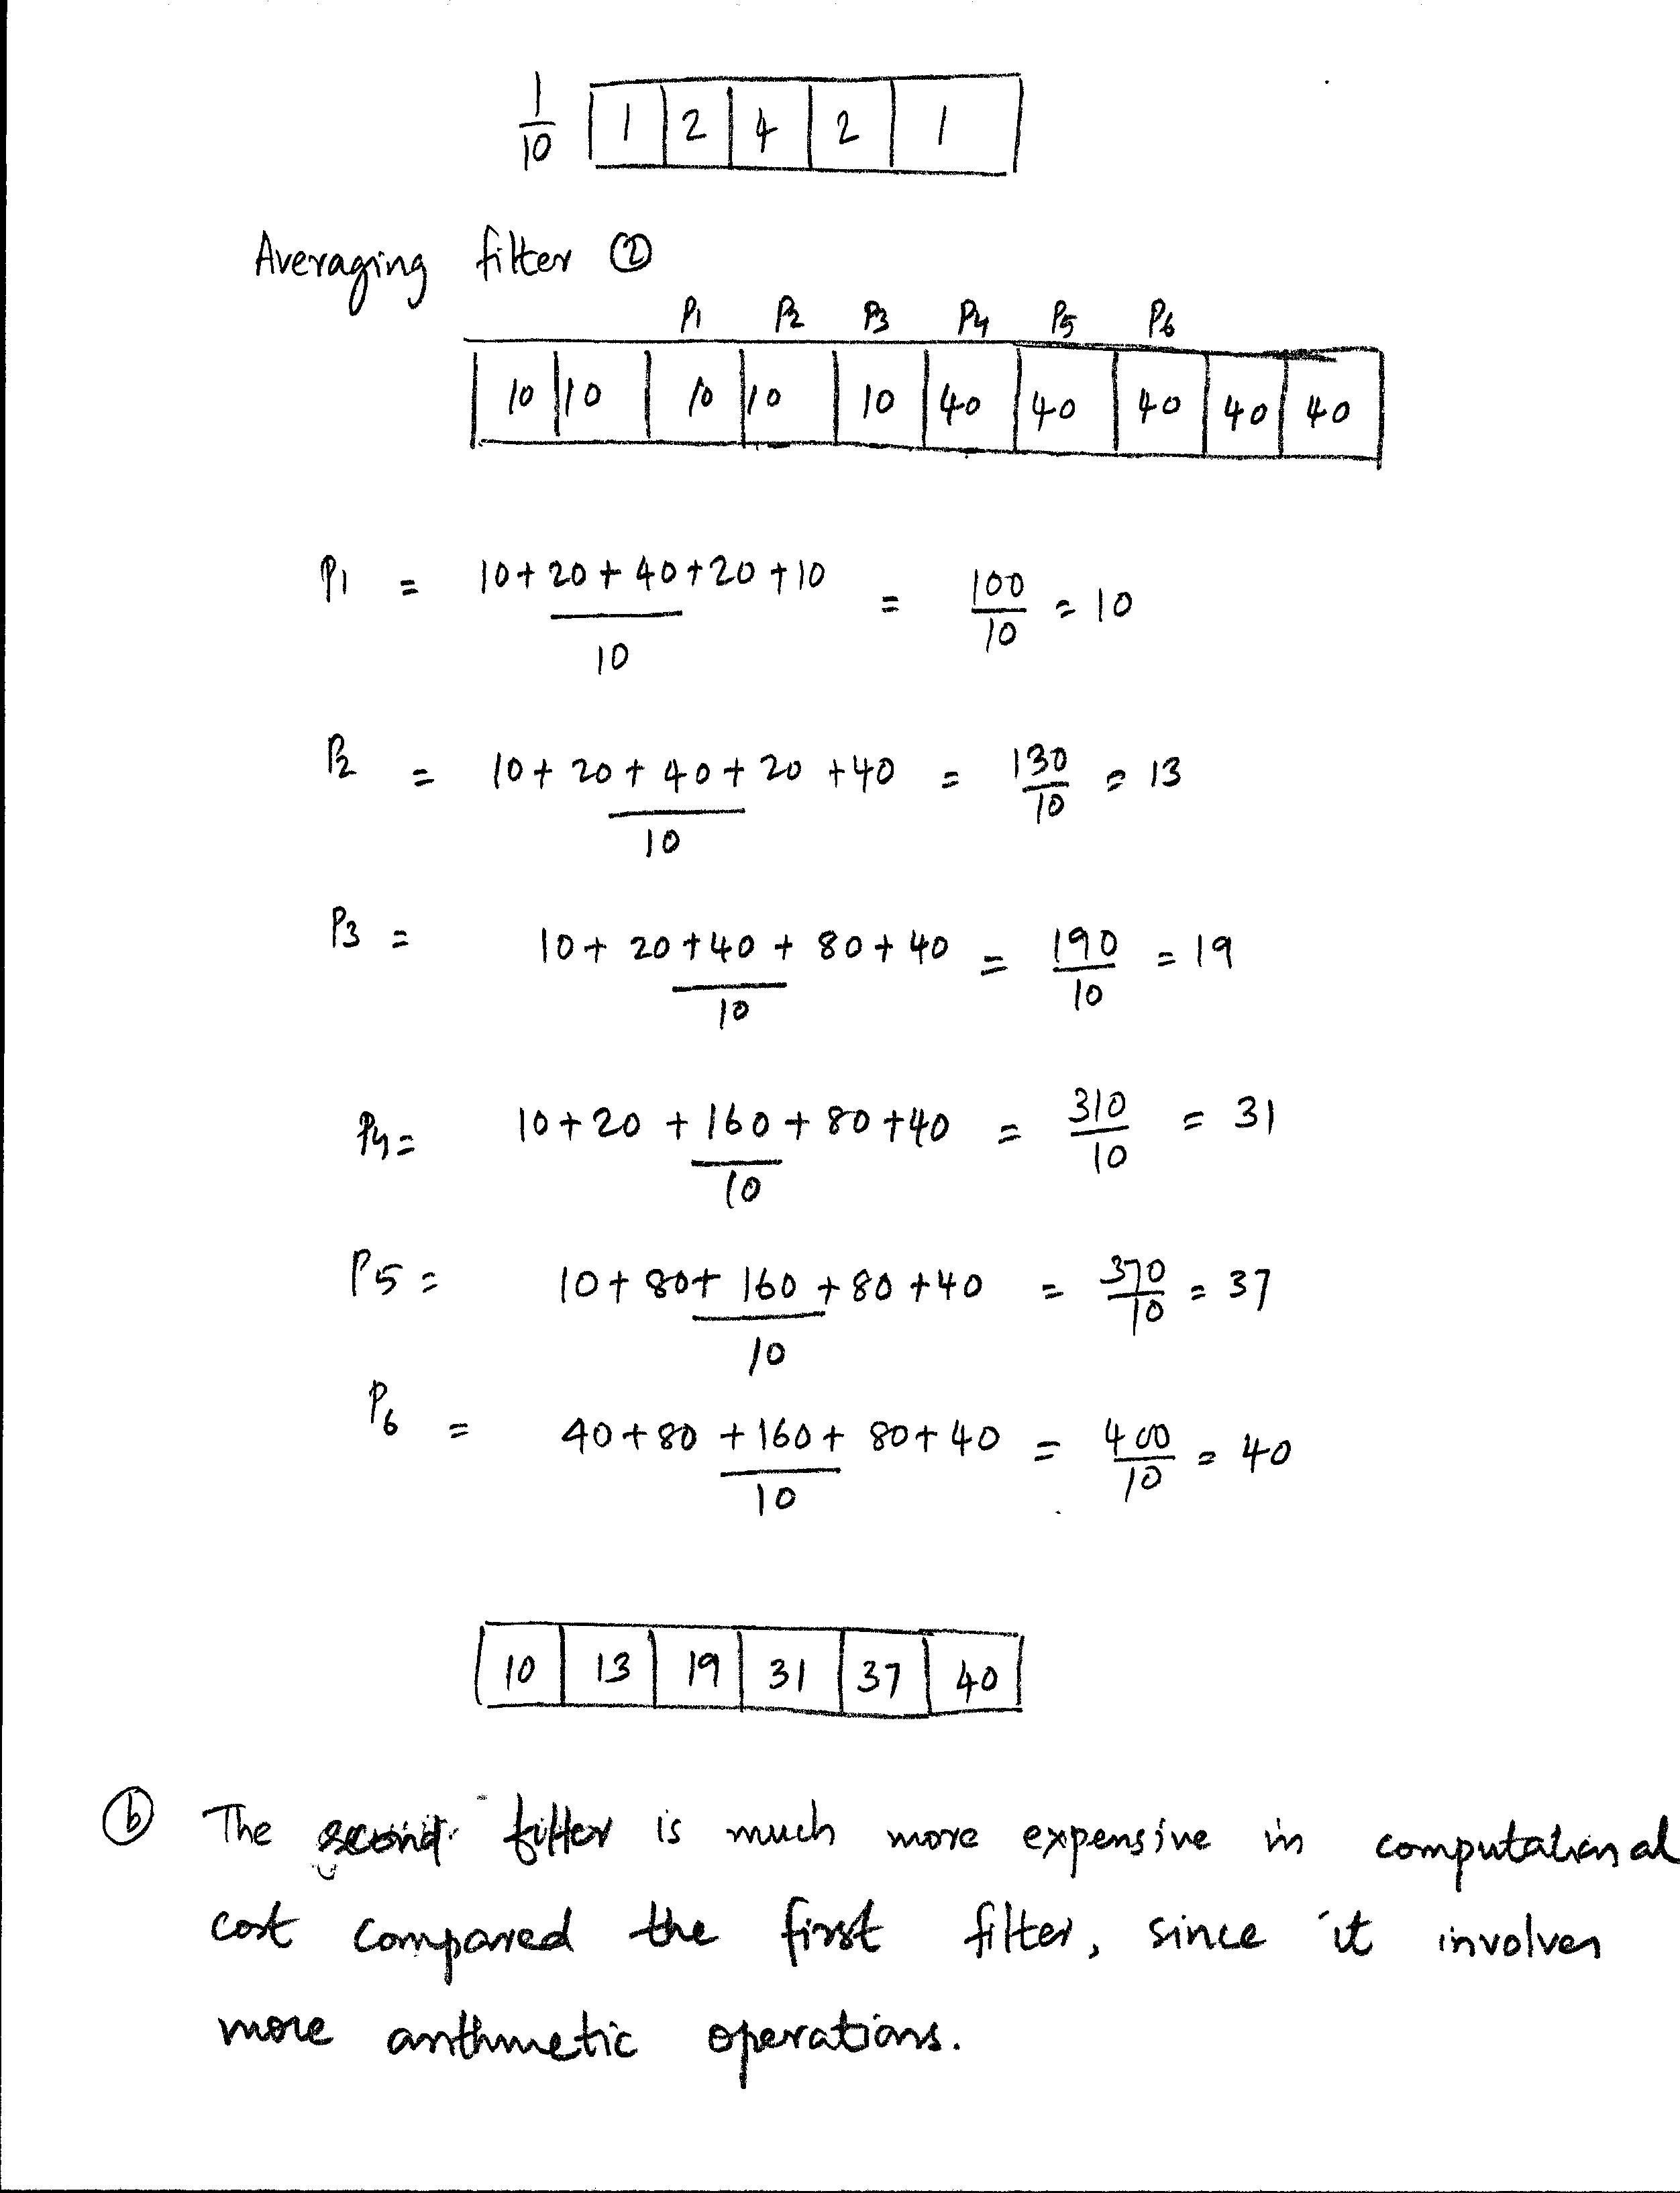 1/10 | 1 | 2 | 4 | 2 | 1 |
Averaging filter ②
P1 P2 P3 P4 P5 P6
| 10 | 10 | 10 | 10 | 10 | 40 | 40 | 40 | 40 | 40 |
P1 = (10+20+40+20+10)/10 = 100/10 = 10
P2 = (10+20+40+20+40)/10 = 130/10 = 13
P3 = (10+20+40+80+40)/10 = 190/10 = 19
P4 = (10+20+160+80+40)/10 = 310/10 = 31
P5 = (10+80+160+80+40)/10 = 370/10 = 37
P6 = (40+80+160+80+40)/10 = 400/10 = 40
| 10 | 13 | 19 | 31 | 37 | 40 |
ⓑ The second filter is much more expensive in computational
cost compared the first filter, since it involves
more arithmetic operations.